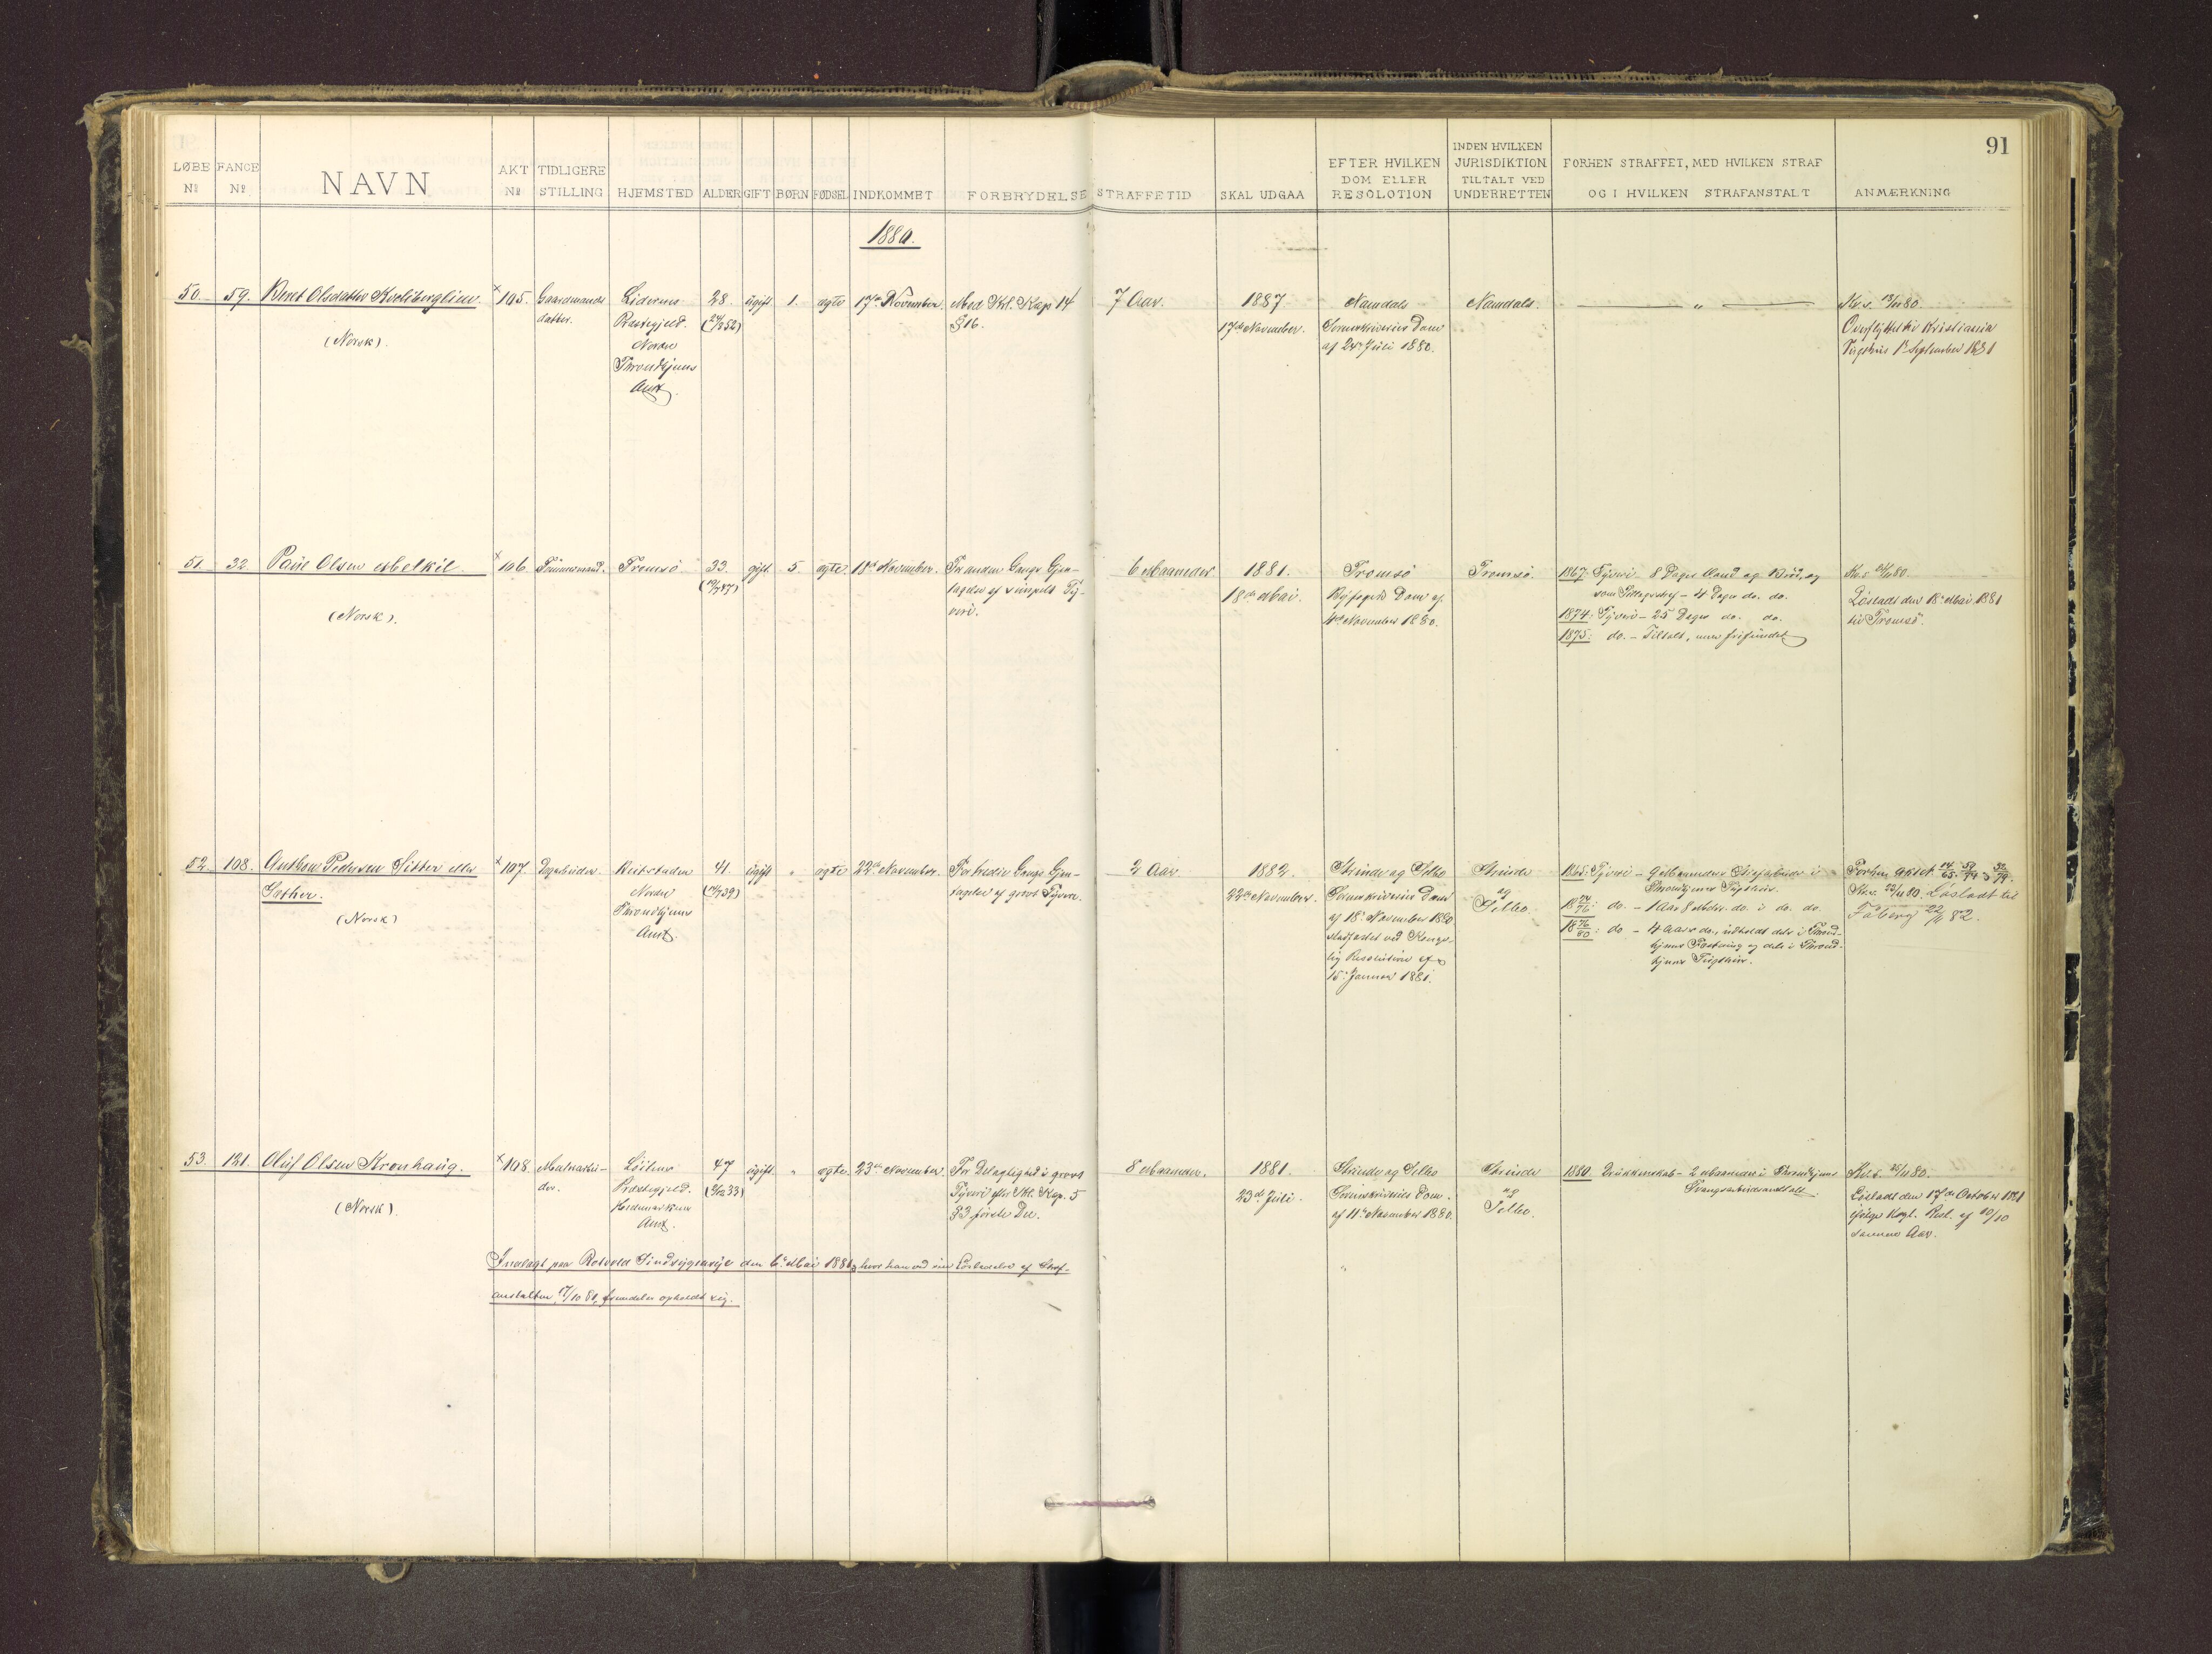 91
LØBE № FANGE № NAVN AKT № TIDLIGERE STILLING HJEMSTED ALDER GIFT BØRN FØDSEL INDKOMMET FORBRYDELSE STRAFFETID SKAL UDGAA EFTER HVILKEN DOM ELLER RESOLOTION INDEN HVILKEN JURISDIKTION TILTALT VED UNDERRETTEN FORHEN STRAFFET, MED HVILKEN STRAF OG I HVILKEN STRAFANSTALT ANMÆRKNING
1880.
50. 59. Beret Olsdatter Kvelibergliem
(Norsk).
× 105.
Gaardmands
datter.
Lidernes
Præstegjeld.
Nordre
Throndhjems
Amt.
28.
(24/3 52)
ugift
1.
ægte
17de November.
Med Krl. Kap 14
§ 16.
7 Aar.
1887
17de November.
Namdals
Sorenskriveries Dom
af 24de Juli 1880.
Namdals.
"
Overflyttet til Kristiania
Tugthus 1ste September 1881
51. 32. Paul Olsen Melkil
(Norsk).
× 106.
Tømmermand.
Tromsø
33.
gift
5.
ægte
18de November.
For anden Gangs Gjen-
tagelse af simpelt Ty-
veri.
6 Maaneder
1881.
18de Mai.
Tromsø
Byfogeds Dom af
4de November 1880.
Tromsø.
1867: Tyveri – 8 Dages Vand og Brød, og
som Tillægsstraf – 4 Dage do. do.
1874: Tyveri – 25 Dages do. do.
1875: do. – Tiltalt, men frifundet
Løsladt den 18de Mai 1881
til Tromsø.
52. 108. Anthon Pedersen Sitter eller
Sæther.
(Norsk)
× 107.
Dagarbeider
Beitstaden
Nordre
Throndhjems
Amt.
41.
ugift
"
ægte
22de November.
For tredie Gangs Gjen-
tagelse af grovt Tyveri.
2 Aar
1882.
22de November.
Strinde og Selbo
Sorenskriveries Dom
af 18de November 1880
stadfæstet ved Konge-
lig Resolution af
15de Januar 1881.
Strinde
og
Selbo.
1865: Tyveri – 9 Maaneders Strafarbeide i
Throndhjems Tugthus.
18 74/76: do. – 1 Aar 8 Mdr. do. i do. do.
18 76/80: do – 4 Aars do., udholdt dels i Thrond-
hjems Fæstning og dels i Thrond-
hjems Tugthus.
Løsladt til
Fåberg 22/11 82.
53. 121. Oluf Olsen Kronhaug.
(Norsk).
× 108.
Løiten
Præstegjeld.
Hedemarkens
Amt.
47
(3/12 33)
ugift
"
ægte.
23de November.
For Delagtighed i grovt
Tyveri efter Krl. Kap. 5
§ 3 første Del.
8 Maaneder.
1881.
23de Juli.
Strinde og Selbo
Sorenskriveries Dom
af 11te November 1880.
Strinde
og
Selbo.
1880. Drukkenskab – 2 Maaneder i Throndhjems
Tvangsarbeidsandstalt.
Løsladt den 17de October 1881
ifølge Kngl. Resl. af 10/10
samme Aar.
Indlagt paa Rotvold Sindsygeasyl den 6te Mai 1881, hvor han ved sin Løsladelse af Straf-
anstalten, 17/10 81, fremdeles opholdt sig.